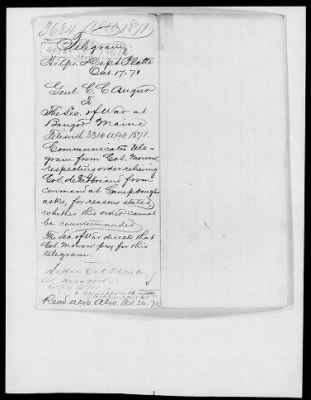 3684 A.C.P. 1871
Telegram
Hd. Qrs. Dept. Platte
Oct. 17. 71
Genl. C. C. Augur
To
The Sec. of War at
Bangor Maine
File with 3314 A.C.P. 1871.
Communicates tele-
gram from Col. Morrow
respecting order relieving
Col. de Trobriand from
command at Camp Douglas
asks, for reasons stated,
whether this order cannot
be countermanded.
The Sec of War directs that
Col Morrow pay for this
telegram.
Letter Oct
Recd. Oct. 26. 71